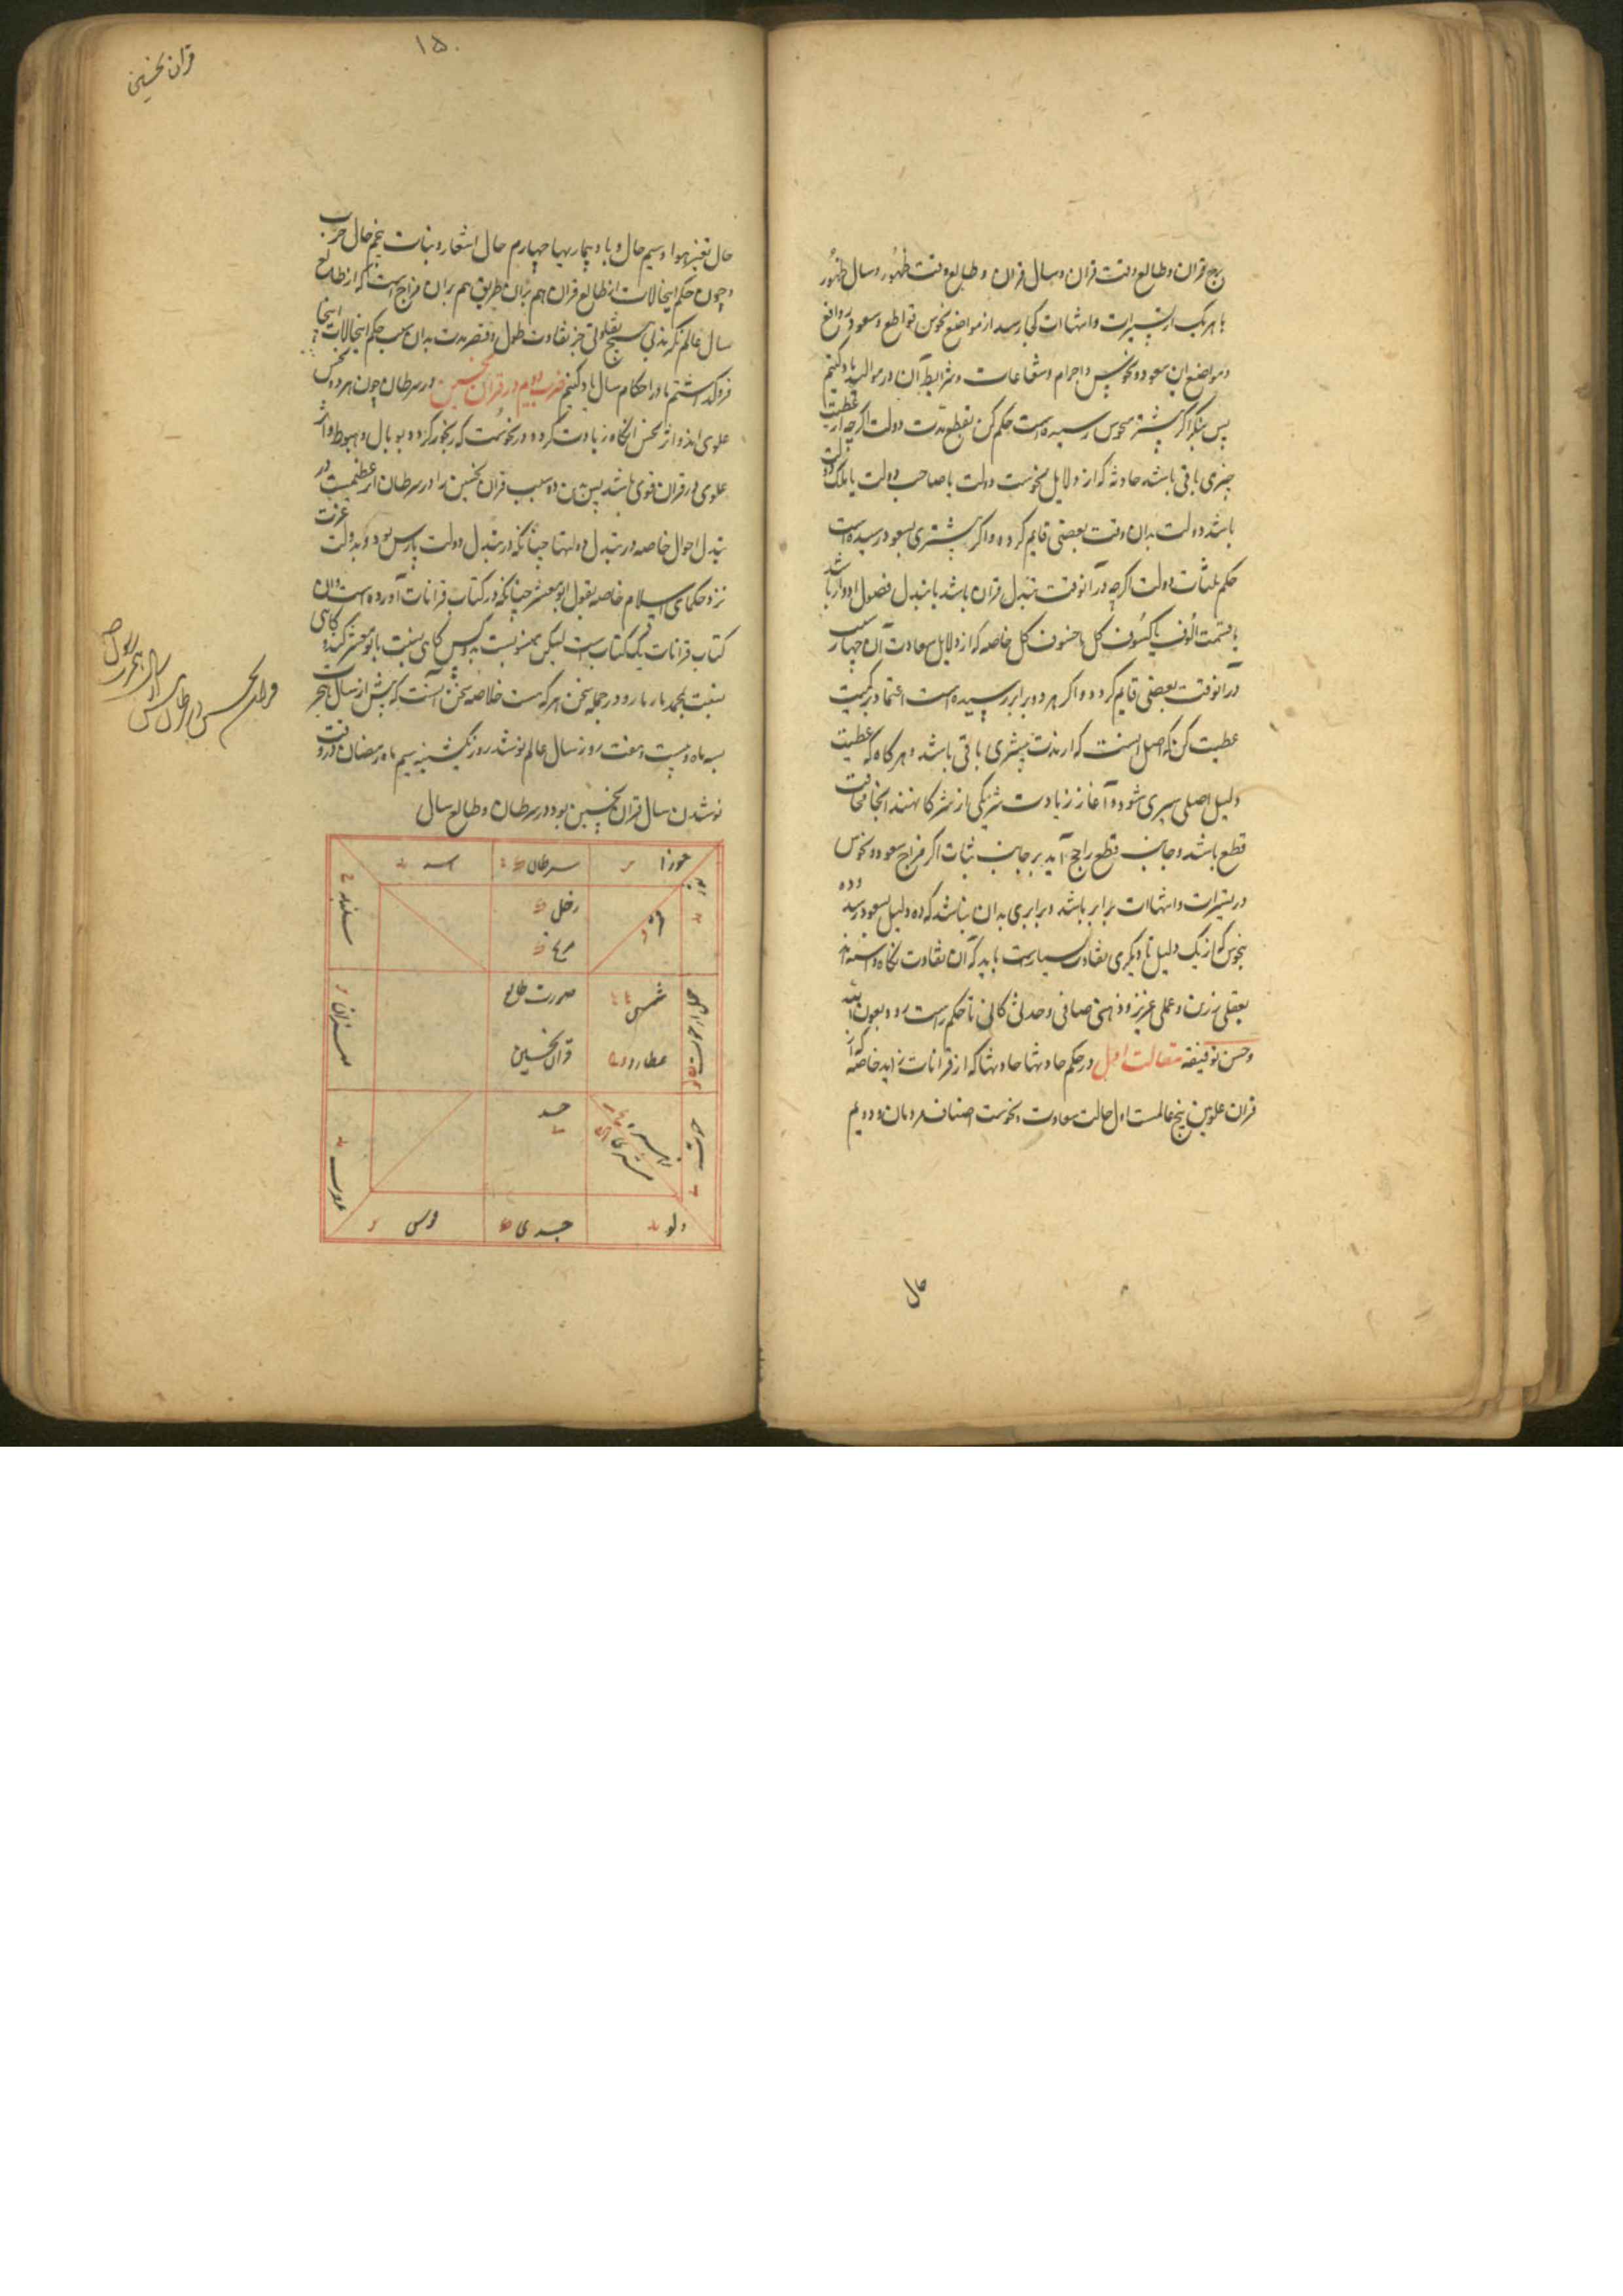 برج قران و طالع وقت قران و سال قران و طالع وقت ظهور و سال ظهور
با هر یک از تسییرات و انتهاات کی رسد از مواضع نحوس قواطع و سعود روافع
و مواضع این سعود و نحوس و اجرام و شعاعات و شرایط آن در موالید یاد کنیم
پس بنگر اگر بیشتر بنحوس رسیده است حکم کن بقطع مدت دولت اگر چه از عطیت
چیزی باقی باشد حادثه که از دلایل نحوست دولت یا صاحب دولت یا ملک
باشد دولت بدان وقت بعضی قایم گردد و اگر بیشتری بسعود رسیده است
حکم ثبات دولت اگر چه در آنوقت تبدل قران باشد یا تبدل فصول ادوار باشد
یا قسمت الوف یا کسوف کل یا خسوف کل خاصه که از دلایل سعادت آن
در آنوقت بعضی قایم گردد و اگر هر دو برابر رسیده است اعتماد بر کمیت
عطیت کن که اصل اینست که از مدت بیشتری باقی باشد و هر گاه که عطیت
دلیل اصلی سپری شود و آغاز زیادت شریکی از شرکا نهند آنجا مخافت
قطع باشد و جانب قطع راجح آید بر جانب ثبات اگر مزاج سعود و نحوس
در تسییرات و انتهاات برابر باشد و برابری بدان نباشد که ده دلیل بسعود رسد و ده
بنحوس که از یک دلیل تا دیگری تفاوت بسیارست باید که آن تفاوت نگاه داشته اند
بعقلی رزین و عملی عزیز و ذهنی صافی و حدسی کافی تا حکم راست رود بعون الله
و حسن توفیقه مقالت اول در حکم حادثها حادثها که از قرانات زاید خاصه که از
قران علویین پنج حالست اول حالت سعادت و نحوست اصناف مردمان و دویم
حال
۱۵۰
قران نحسین
حال تغییر هوا و سیم حال وبا و بیماریها چهارم حال اشعار و نبات پنجم حال حرب
و چون حکم اینحالات از طالع قران هم بران طریق هم بران مزاج است که از طالع
سال عالم نگرند بی هیچ تفاوتی جز تفاوت طول و قصر مدت بدان سبب حکم اینحالات اینجا
فرو گذاشتم تا در احکام سال یاد کنیم ضرب دویم در قران نحسین در سرطان چون هر دو نحس
علوی اند و اثر نحس آنگاه زیادت گردد در نحوست که رنجور گردد بوبال و هبوط و اثر
علوی در قران قوی باشد پس بدین دو سبب قران نحسین را در سرطان اثر عظیمست در
تبدل احوال خاصه در تبدل دولتها چنانکه در تبدل دولت پارس بود و بدولت عزت
نزد حکمای اسلام خاصه بقول ابو معشر چنانکه در کتاب قرانات آورده است و آن
کتاب قرانات یک کتاب است لیکن منسوبست بدو کس گاهی نسبت بابو معشر کنند و گاهی
نسبت بمحمد بازیار و در جمله سخن هر که هست خلاصه سخن آنست که پیش از سال هجرت
بسه ماه و بیست و هفت روز سال عالم نو شد روز یکشنبه سیم ماه رمضان و در وقت
نو شدن سال قران نحسین بود در سرطان و طالع سال
قران نحسین در سرطان سال هجرت رسول
جوزا
سرطان
اسد
سنبله
زحل
مریخ
قمر
حمل
شمس
عطارد
صورت طالع
قران نحسین
میزان
حوت
زهره
مشتری
جسد
عقرب
دلو
جدی
قوس